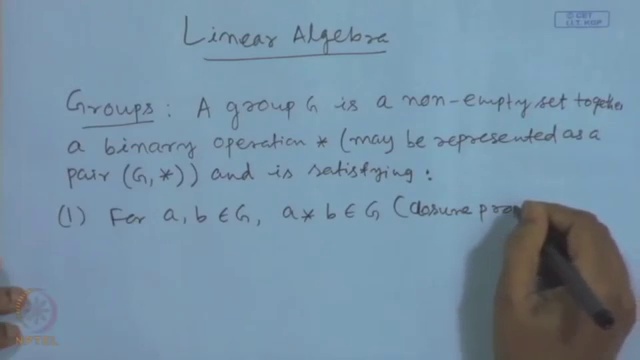 © CET
I.I.T. KGP
Linear Algebra
Groups: A group G is a non-empty set together
a binary operation * (may be represented as a
pair (G, *)) and is satisfying:
(1) For a, b ∈ G, a * b ∈ G (closure pro
NPTEL